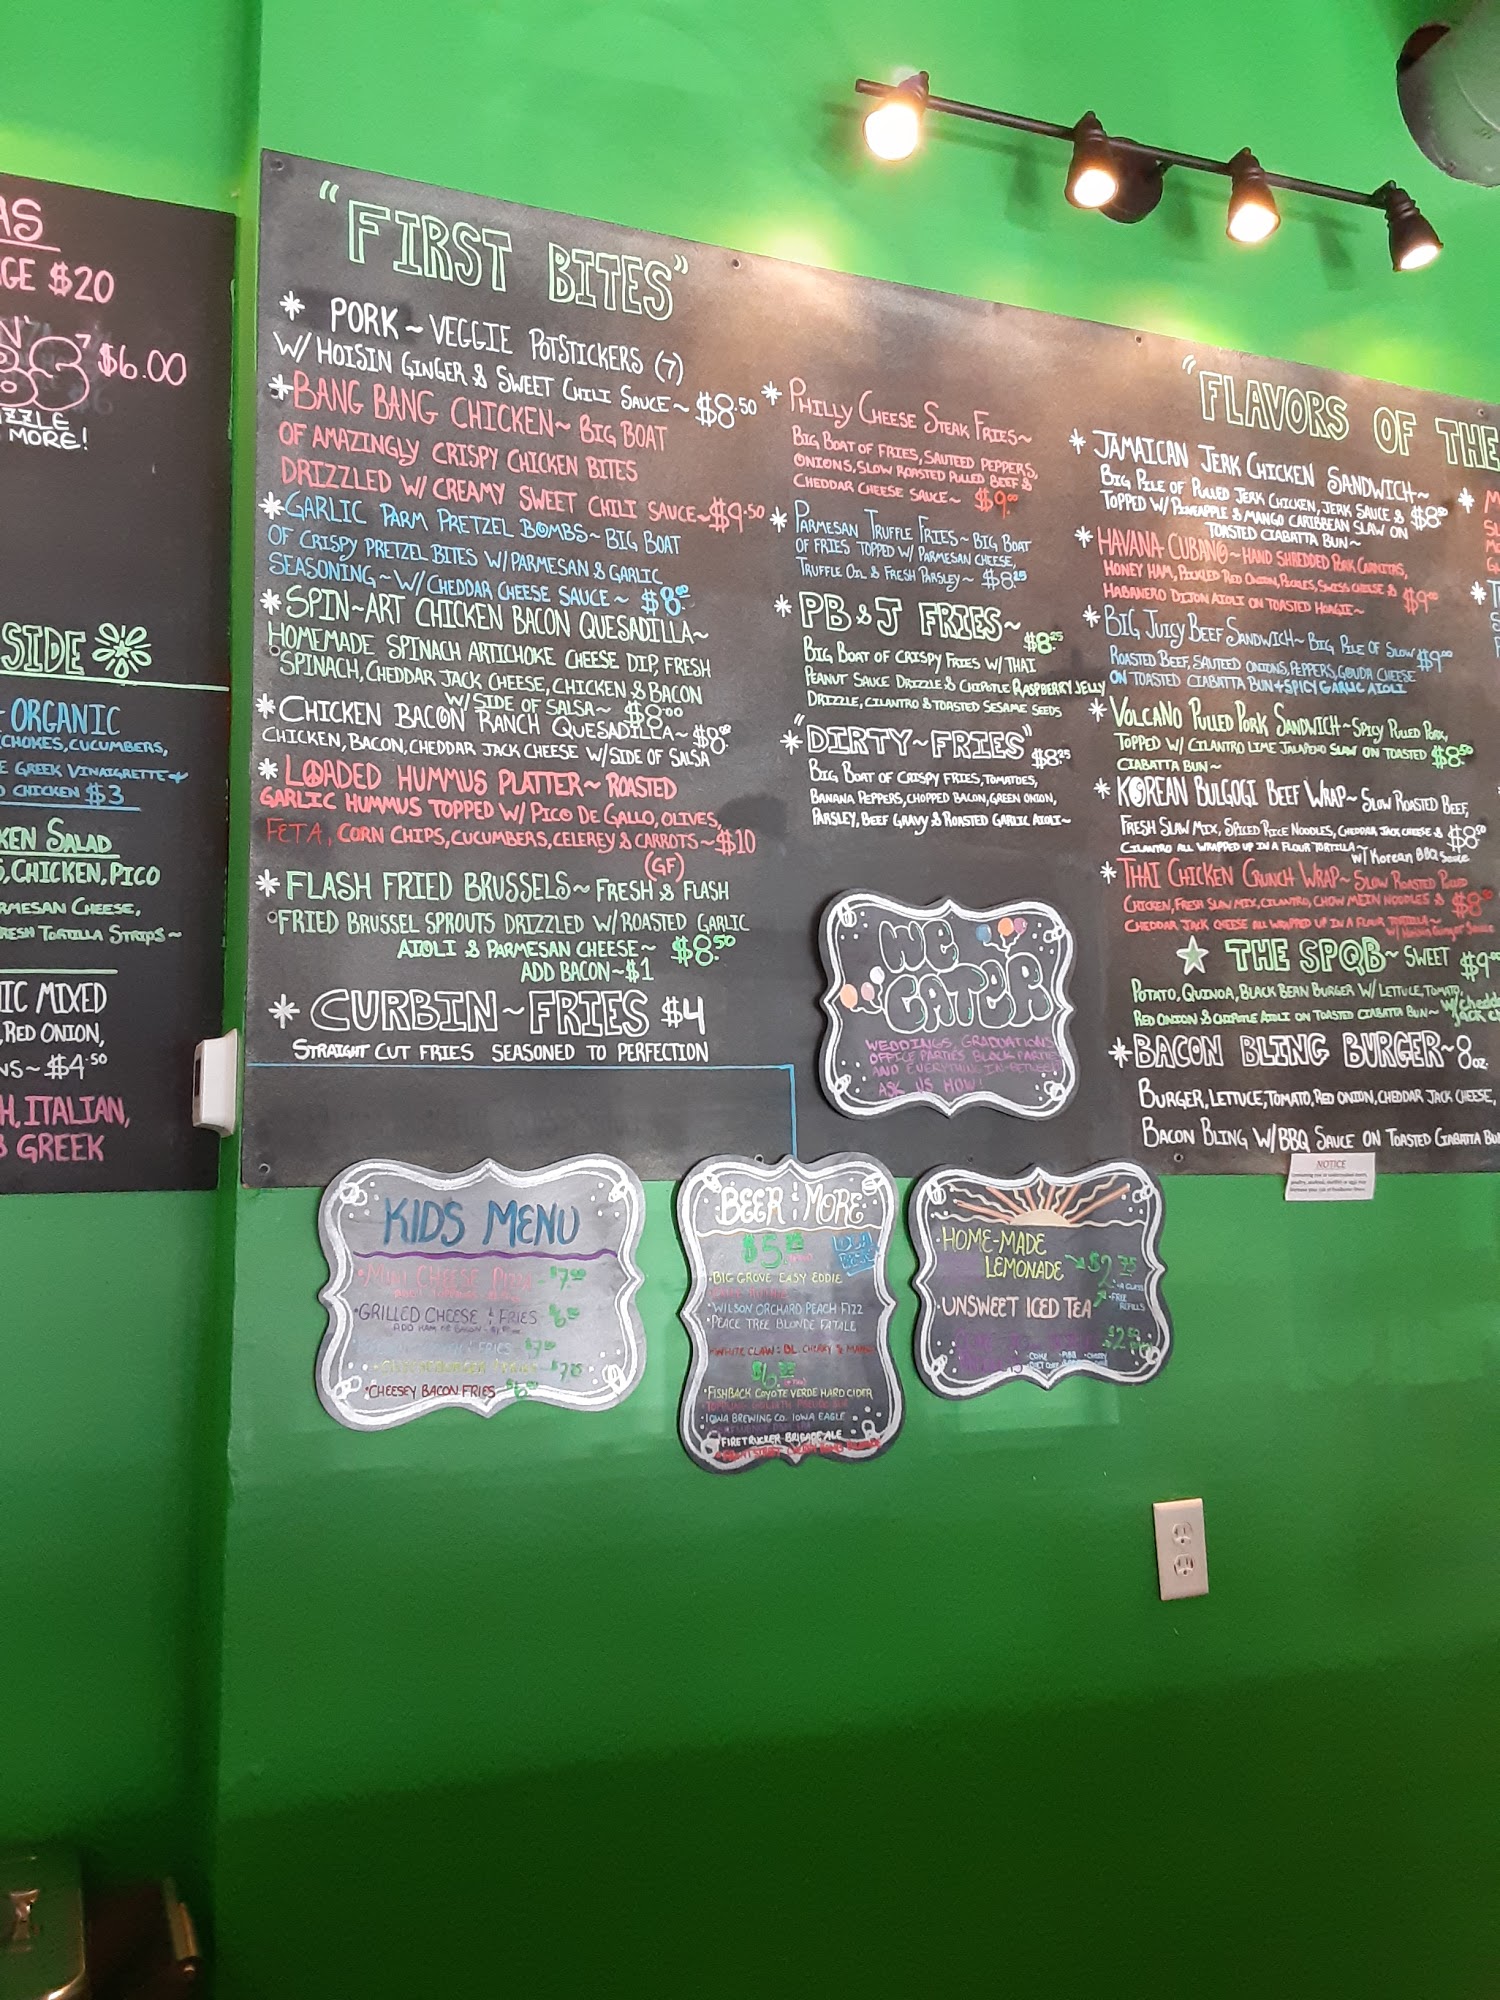 AS
GE $20
$6.00
MORE!
SIDE
ORGANIC
CHOKES, CUCUMBERS,
GREEK VINAIGRETTE +
CHICKEN $3
KEN SALAD
CHICKEN, PICO
RMESAN CHEESE,
RESH TORTILLA STRIPS~
IC MIXED
RED ONION,
NS~ $4.50
H, ITALIAN,
& GREEK
"FIRST BITES"
* PORK~VEGGIE POTSTICKERS (7)
W/ HOISIN GINGER & SWEET CHILI SAUCE~ $8.50
* BANG BANG CHICKEN~ BIG BOAT
OF AMAZINGLY CRISPY CHICKEN BITES
DRIZZLED W/ CREAMY SWEET CHILI SAUCE~$9.50
* GARLIC PARM PRETZEL BOMBS~ BIG BOAT
OF CRISPY PRETZEL BITES W/PARMESAN & GARLIC
SEASONING~ W/CHEDDAR CHEESE SAUCE~ $8.00
* SPIN~ART CHICKEN BACON QUESADILLA~
HOMEMADE SPINACH ARTICHOKE CHEESE DIP, FRESH
SPINACH, CHEDDAR JACK CHEESE, CHICKEN & BACON
W/SIDE OF SALSA~ $8.00
* CHICKEN BACON RANCH QUESADILLA~ $8.00
CHICKEN, BACON, CHEDDAR JACK CHEESE W/SIDE OF SALSA
* LOADED HUMMUS PLATTER~ ROASTED
GARLIC HUMMUS TOPPED W/ PICO DE GALLO, OLIVES,
FETA, CORN CHIPS, CUCUMBERS, CELEREY & CARROTS~$10
(GF)
* FLASH FRIED BRUSSELS~ FRESH & FLASH
FRIED BRUSSEL SPROUTS DRIZZLED W/ROASTED GARLIC
AIOLI & PARMESAN CHEESE~ $8.50
ADD BACON~$1
* CURBIN~FRIES $4
STRAIGHT CUT FRIES SEASONED TO PERFECTION
* PHILLY CHEESE STEAK FRIES~
BIG BOAT OF FRIES, SAUTEED PEPPERS,
ONIONS, SLOW ROASTED PULLED BEEF &
CHEDDAR CHEESE SAUCE~ $9.00
* PARMESAN TRUFFLE FRIES~ BIG BOAT
OF FRIES TOPPED W/ PARMESAN CHEESE,
TRUFFLE OIL & FRESH PARSLEY~ $8.25
* PB & J FRIES~ $8.25
BIG BOAT OF CRISPY FRIES W/ THAI
PEANUT SAUCE DRIZZLE & CHIPOTLE RASPBERRY JELLY
DRIZZLE, CILANTRO & TOASTED SESAME SEEDS
* "DIRTY~FRIES" $8.25
BIG BOAT OF CRISPY FRIES, TOMATOES,
BANANA PEPPERS, CHOPPED BACON, GREEN ONION,
PARSLEY, BEEF GRAVY & ROASTED GARLIC AIOLI~
WE
CATER
WEDDINGS, GRADUATIONS
OFFICE PARTIES BLOCK PARTIES
AND EVERYTHING IN-BETWEEN
ASK US HOW!
"FLAVORS OF THE
* JAMAICAN JERK CHICKEN SANDWICH~
BIG PILE OF PULLED JERK CHICKEN, JERK SAUCE & $8.50
TOPPED W/ PINEAPPLE & MANGO CARIBBEAN SLAW ON
TOASTED CIABATTA BUN~
* HAVANA CUBANO~ HAND SHREDDED PORK CARNITAS,
HONEY HAM, PICKLED RED ONION, PICKLES, SWISS CHEESE & $9.00
HABANERO DIJON AIOLI ON TOASTED HOAGIE~
* BIG JUICY BEEF SANDWICH~ BIG PILE OF SLOW $9.00
ROASTED BEEF, SAUTEED ONIONS, PEPPERS, GOUDA CHEESE
ON TOASTED CIABATTA BUN + SPICY GARLIC AIOLI
* VOLCANO PULLED PORK SANDWICH~ SPICY PULLED PORK,
TOPPED W/ CILANTRO LIME JALAPENO SLAW ON TOASTED $8.50
CIABATTA BUN~
* KOREAN BULGOGI BEEF WRAP~ SLOW ROASTED BEEF,
FRESH SLAW MIX, SPICED RICE NOODLES, CHEDDAR JACK CHEESE & $8.50
CILANTRO ALL WRAPPED UP IN A FLOUR TORTILLA~
W/ Korean BBQ Sauce
* THAI CHICKEN CRUNCH WRAP~ SLOW ROASTED PULLED
CHICKEN, FRESH SLAW MIX, CILANTRO, CHOW MEIN NOODLES & $8.50
CHEDDAR JACK CHEESE ALL WRAPPED UP IN A FLOUR TORTILLA~
W/ Hoisin Ginger Sauce
THE SPQB~ SWEET $9.00
POTATO, QUINOA, BLACK BEAN BURGER W/ LETTUCE, TOMATO,
RED ONION & CHIPOTLE AIOLI ON TOASTED CIABATTA BUN~ W/chedd
jack ch
* BACON BLING BURGER~ 8 OZ.
BURGER, LETTUCE, TOMATO, RED ONION, CHEDDAR JACK CHEESE,
BACON BLING W/BBQ SAUCE ON TOASTED CIABATTA BU
NOTICE
KIDS MENU
• MINI CHEESE PIZZA $7.00
• GRILLED CHEESE & FRIES $6.50
ADD HAM OR BACON
• CHEESEY BACON FRIES $6.00
BEER & MORE
LOCAL BEERS
• BIG GROVE EASY EDDIE
• WILSON ORCHARD PEACH FIZZ
• PEACE TREE BLONDE FATALE
• WHITE CLAW: BL. CHERRY & MANGO
• FISHBACK COYOTE VERDE HARD CIDER
• IOWA BREWING CO. IOWA EAGLE
• FIRETRUCKER BRIGADE ALE
• HOME-MADE
LEMONADE $2.75
• A GLASS
• FREE
REFILLS
• UNSWEET ICED TEA